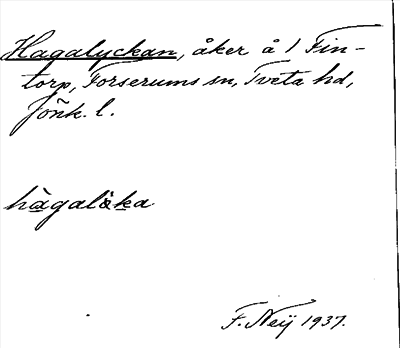 Hagalyckan, åker å 1 Fin-
torp, Forserums sn, Tveta hd,
Jönk. l.
hàgalö̀ka
F. Neij 1937.